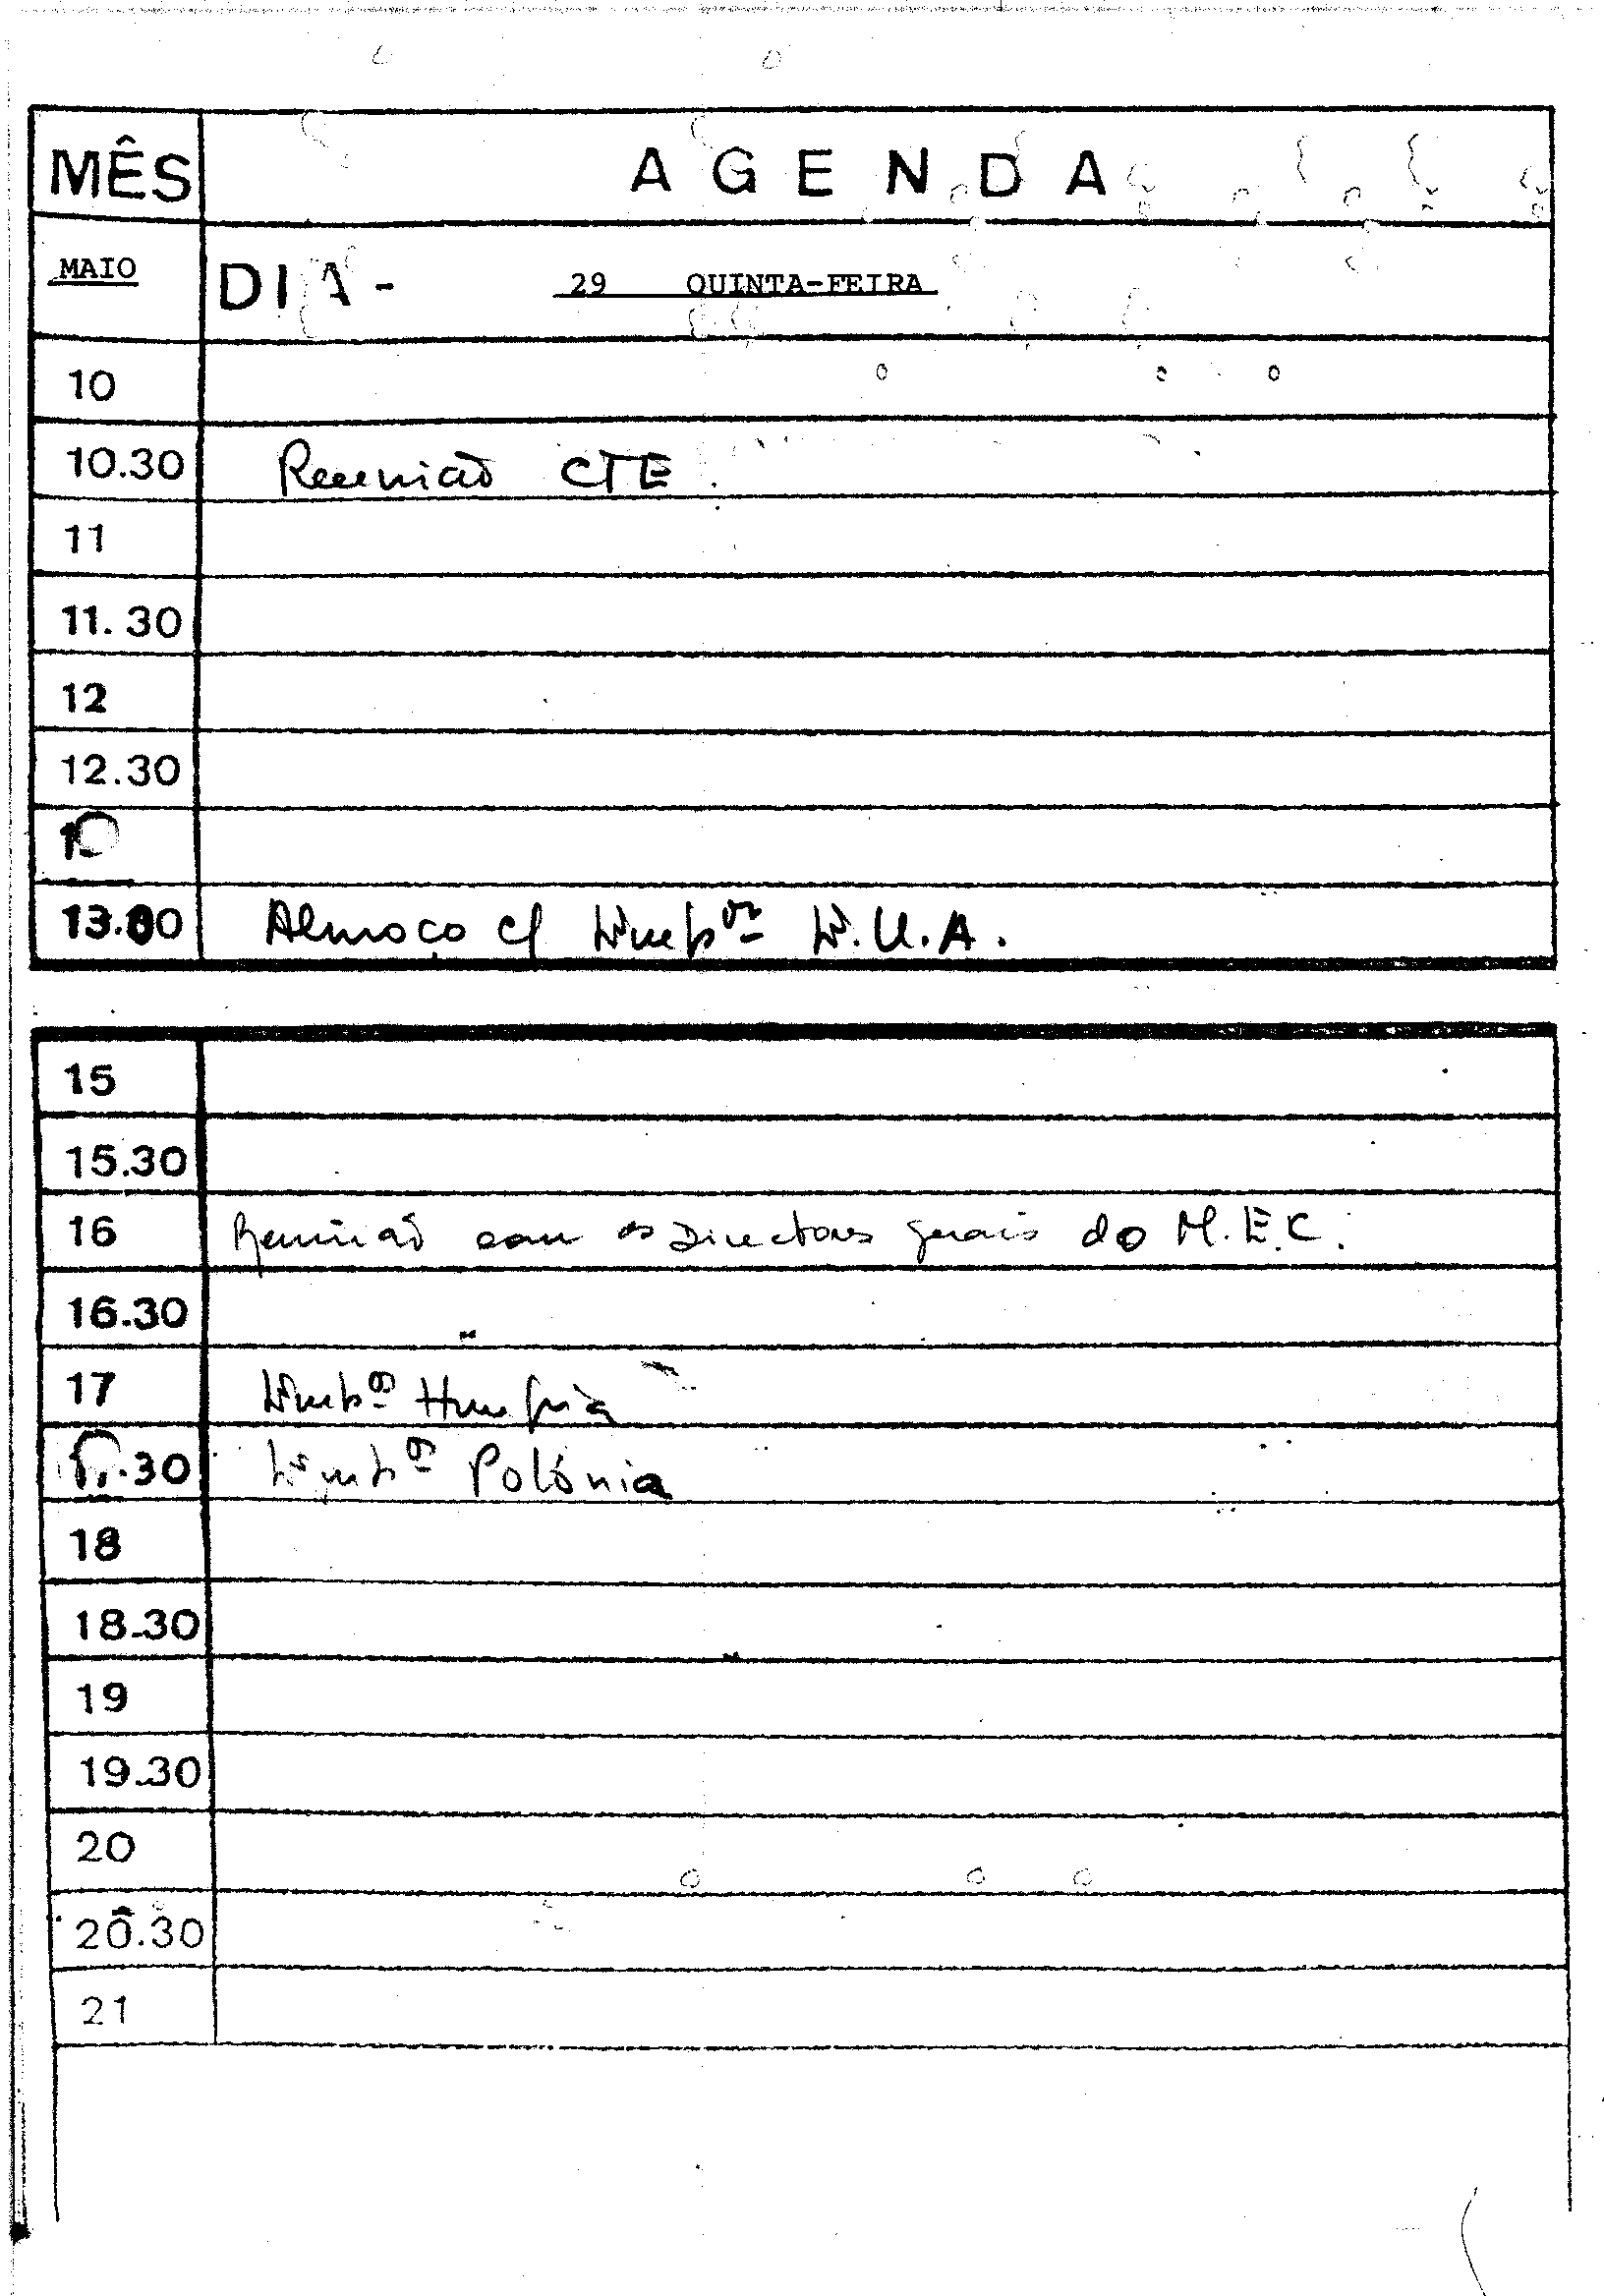 MÊS AGENDA
MAIO DIA - 29 QUINTA-FEIRA
10
10.30 Reunião CTE.
11
11.30
12
12.30
13.00 Almoço c/ Emb.or E.U.A.
15
15.30
16 Reunião com os Directores gerais do M.E.C.
16.30
17 Embª Hungria
.30 Embª Polónia
18
18.30
19
19.30
20
20.30
21